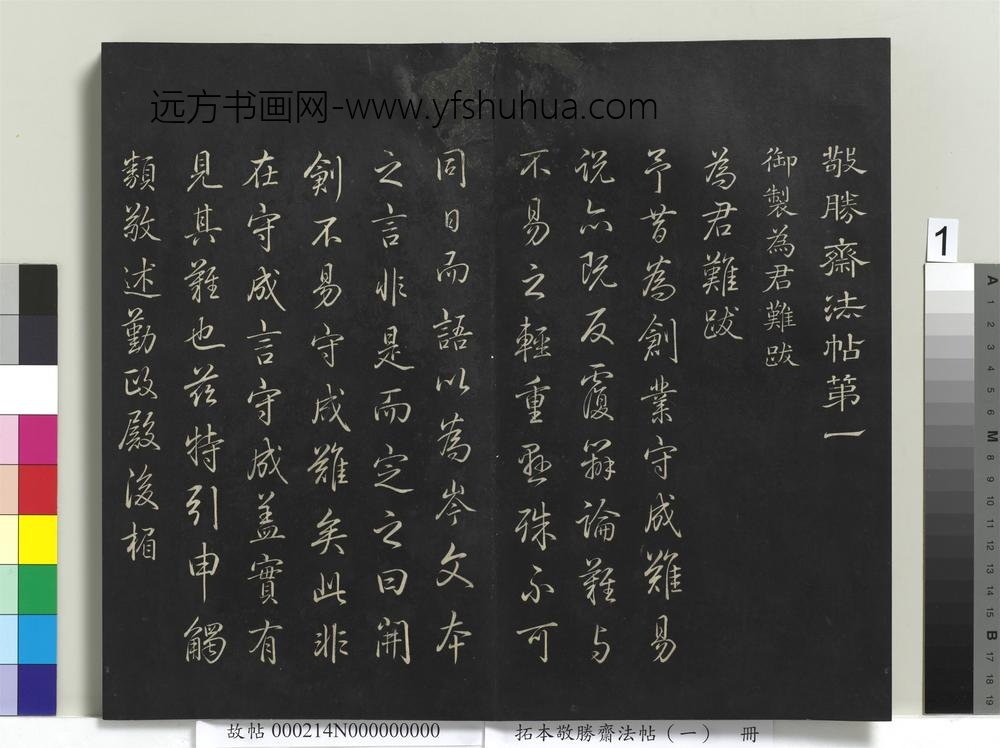 远方书画网-www.yfshuhua.com
敬勝齋法帖第一
御製為君難跋
為君難跋
予昔為創業守成難易
说亦既反覆辭論難与
不易之輕重懸殊不可
同日而語以為岑文本
之言非是而定之曰開
創不易守成難矣此非
在守成言守成盖實有
見其難也茲特引申觸
類敬述勤政殿後楣
1
A
1
2
3
4
5
6
M
8
9
10
11
12
13
14
15
B
17
18
19
故帖 000214N000000000
拓本敬勝齋法帖（一） 冊